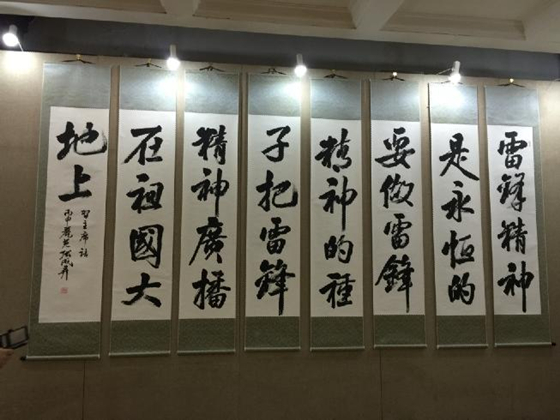 雷锋精神
是永恒的
要做雷鋒
精神的種
子把雷鋒
精神廣播
在祖國大
地上
习主席語
丙申